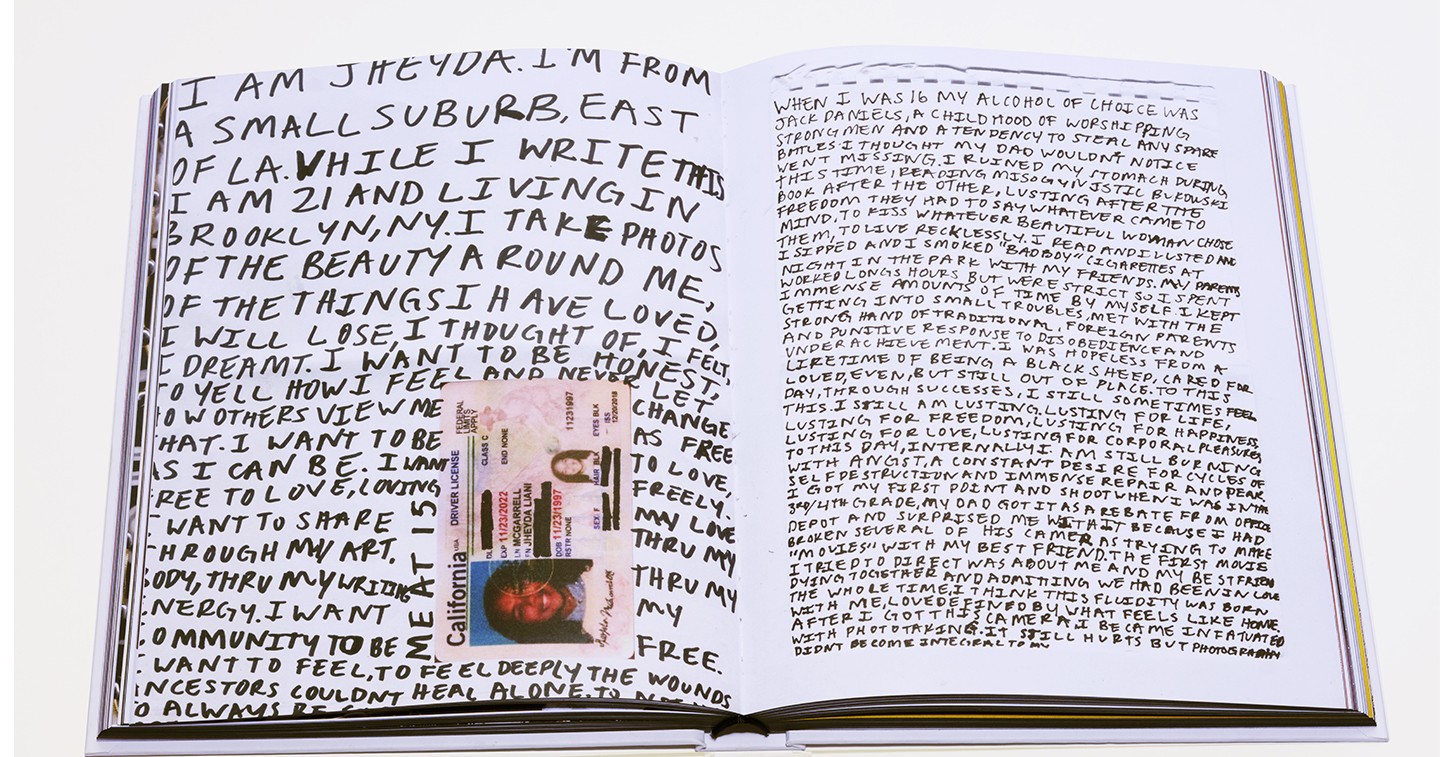 I AM JHEYDA. I'M FROM
A SMALL SUBURB, EAST
OF LA. WHILE I WRITE THIS
I AM 21 AND LIVING IN
BROOKLYN, NY. I TAKE PHOTOS
OF THE BEAUTY AROUND ME,
OF THE THINGS I HAVE LOVED,
I WILL LOSE, I THOUGHT OF, I FELT,
I DREAMT. I WANT TO BE HONEST,
TO YELL HOW I FEEL AND NEVER LET
OW OTHERS VIEW ME CHANGE
HAT. I WANT TO BE AS FREE
AS I CAN BE. I WANT TO LOVE,
FREE TO LOVE, LOVING FREELY.
I WANT TO SHARE MY LOVE
THROUGH MY ART, THRU MY
BODY, THRU MY WRITING THRU MY
ENERGY. I WANT MY
COMMUNITY TO BE FREE.
I WANT TO FEEL, TO FEEL DEEPLY THE WOUNDS
ANCESTORS COULDNT HEAL ALONE. TO
TO ALWAYS BE
ME AT 15
California USA DRIVER LICENSE
FEDERAL
LIMITS
APPLY
DL
CLASS C
EXP 11/23/2022
END NONE
LN MCGARRELL
FN JHEYDA LIANI
DOB 11/23/1997
RSTR NONE
11231997
SEX F
HAIR BLK
EYES BLK
ISS
12/20/2018
WHEN I WAS 16 MY ALCOHOL OF CHOICE WAS
JACK DANIELS, A CHILDHOOD OF WORSHIPPING
STRONG MEN AND A TENDENCY TO STEAL ANY SPARE
BOTTLES I THOUGHT MY DAD WOULDN'T NOTICE
WENT MISSING. I RUINED MY STOMACH DURING
THIS TIME, READING MISOGYNISTIC BUKOWSKI
BOOK AFTER THE OTHER, LUSTING AFTER THE
FREEDOM THEY HAD TO SAY WHATEVER CAME TO
MIND, TO KISS WHATEVER BEAUTIFUL WOMAN CHOSE
THEM, TO LIVE RECKLESSLY. I READ AND LUSTED AND
I SIPPED AND I SMOKED "BADBOY" CIGARETTES AT
NIGHT IN THE PARK WITH MY FRIENDS. MY PARENTS
WORKED LONGS HOURS BUT WERE STRICT SO I SPENT
IMMENSE AMOUNTS OF TIME BY MYSELF. I KEPT
GETTING INTO SMALL TROUBLES, MET WITH THE
STRONG HAND OF TRADITIONAL, FOREIGN PARENTS
AND PUNITIVE RESPONSE TO DISOBEDIENCE AND
UNDERACHIEVEMENT. I WAS HOPELESS FROM A
LIFETIME OF BEING A BLACK SHEEP, CARED FOR
LOVED, EVEN, BUT STILL OUT OF PLACE. TO THIS
DAY, THROUGH SUCCESSES, I STILL SOMETIMES FEEL
THIS. I STILL AM LUSTING, LUSTING FOR LIFE,
LUSTING FOR FREEDOM, LUSTING FOR HAPPINESS,
LUSTING FOR LOVE, LUSTING FOR CORPORAL PLEASURES
TO THIS DAY, INTERNALLY I AM STILL BURNING
WITH ANGST, A CONSTANT DESIRE FOR CYCLES OF
SELF DESTRUCTION AND IMMENSE REPAIR AND PEAK.
I GOT MY FIRST POINT AND SHOOT WHEN I WAS IN THE
3RD/4TH GRADE, MY DAD GOT IT AS A REBATE FROM OFFICE
DEPOT AND SURPRISED ME WITH IT BECAUSE I HAD
BROKEN SEVERAL OF HIS CAMERAS TRYING TO MAKE
"MOVIES" WITH MY BEST FRIEND. THE FIRST MOVIE
I TRIED TO DIRECT WAS ABOUT ME AND MY BEST FRIEND
DYING TOGETHER AND ADMITTING WE HAD BEEN IN LOVE
THE WHOLE TIME. I THINK THIS FLUIDITY WAS BORN
WITH ME, LOVE DEFINED BY WHAT FEELS LIKE HOME.
AFTER I GOT THIS CAMERA I BECAME INFATUATED
WITH PHOTOTAKING. IT STILL HURTS BUT PHOTOGRAPHY
DIDNT BECOME INTEGRAL TO MY